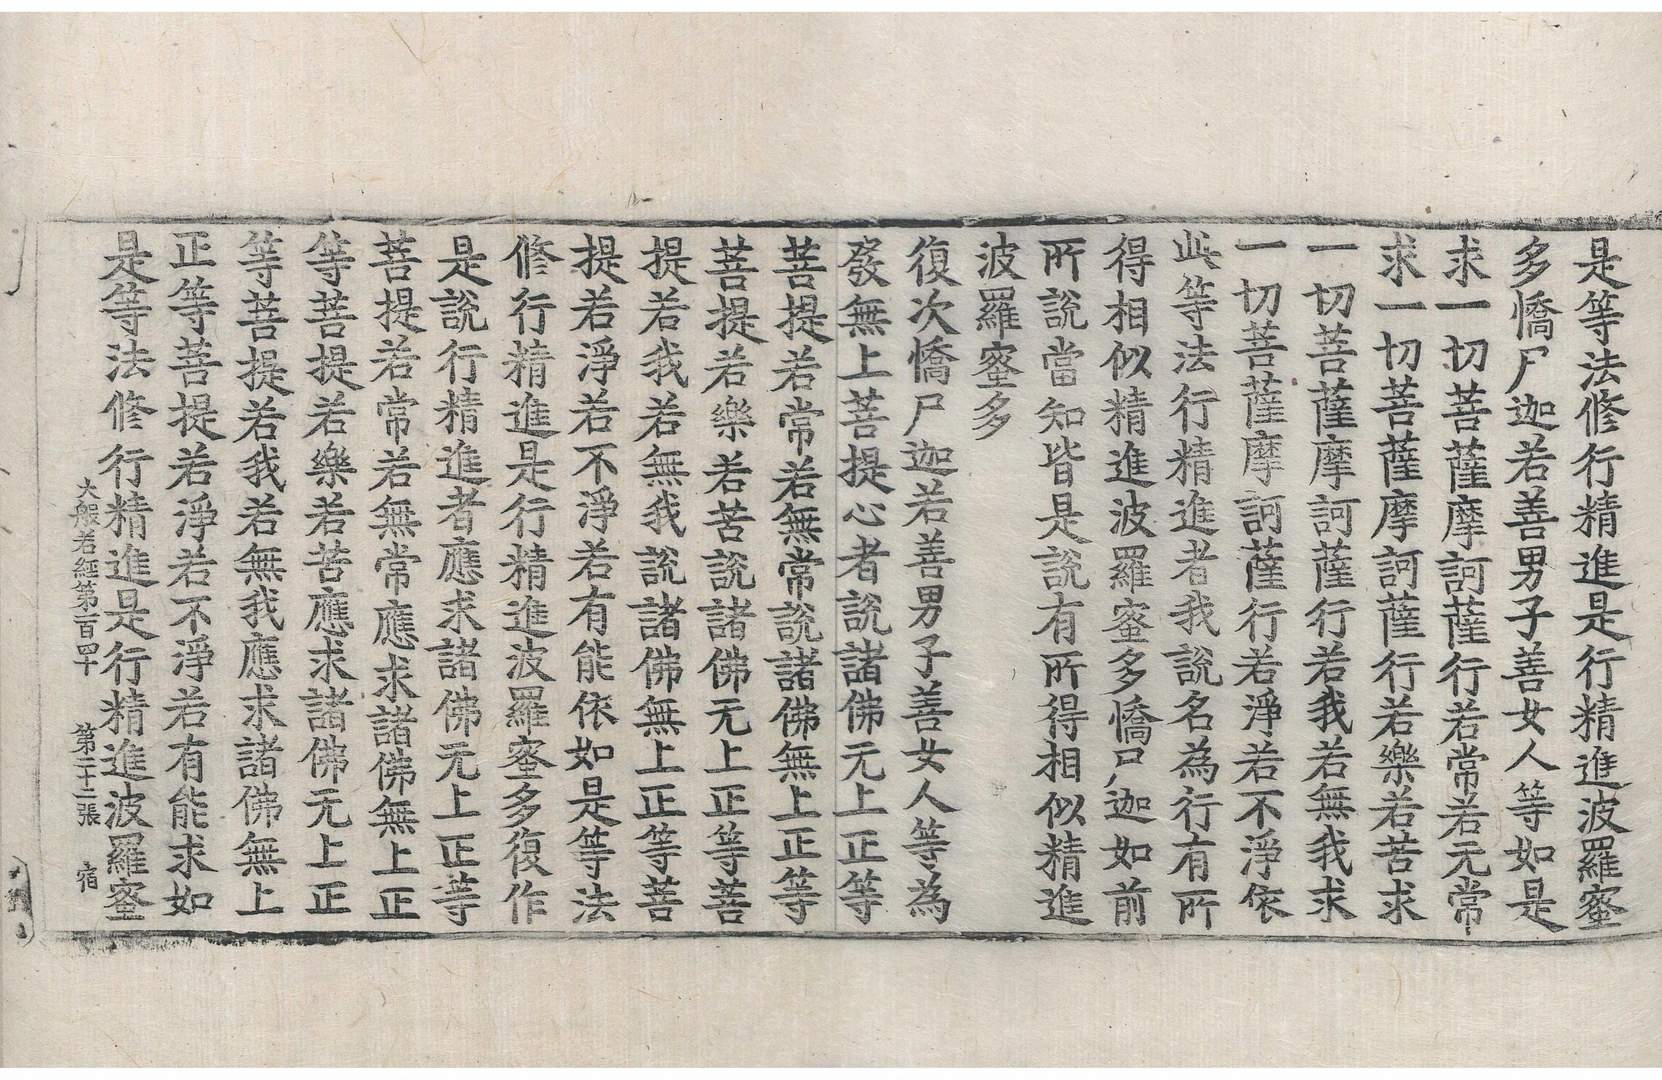 是等法修行精進是行精進波羅蜜
多憍尸迦若善男子善女人等如是
求一切菩薩摩訶薩行若常若无常
求一切菩薩摩訶薩行若樂若苦求
一切菩薩摩訶薩行若我若無我求
一切菩薩摩訶薩行若淨若不淨依
此等法行精進者我說名為行有所
得相似精進波羅蜜多憍尸迦如前
所說當知皆是說有所得相似精進
波羅蜜多
復次憍尸迦若善男子善女人等為
發無上菩提心者說諸佛无上正等
菩提若常若無常說諸佛無上正等
菩提若樂若苦說諸佛无上正等菩
提若我若無我說諸佛無上正等菩
提若淨若不淨若有能依如是等法
修行精進是行精進波羅蜜多復作
是說行精進者應求諸佛无上正等
菩提若常若無常應求諸佛無上正
等菩提若樂若苦應求諸佛无上正
等菩提若我若無我應求諸佛無上
正等菩提若淨若不淨若有能求如
是等法修行精進是行精進波羅蜜
大般若經第一百四十 第二十二張 宿